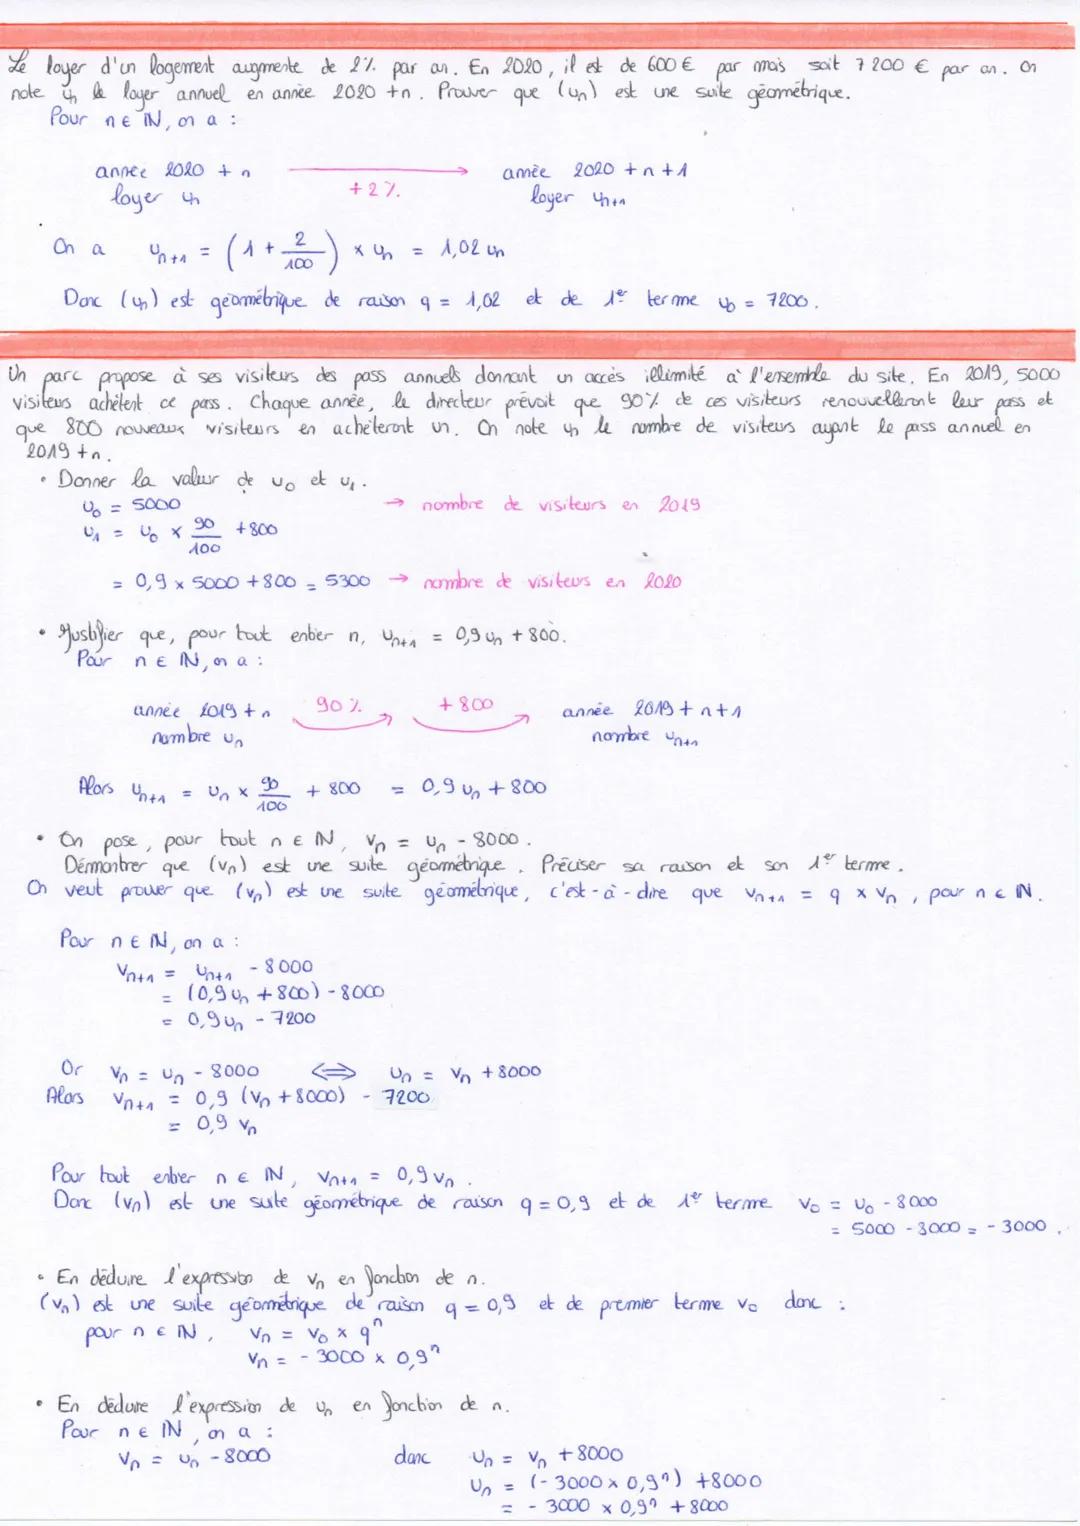 Le loyer d'un logement augmente de 2% par an. En 2020, il est de 600 € par mois soit 7 200 € par an. On
note un le loyer annuel en année 2020 + n. Prouver que (un) est une suite géométrique.
Pour n ∈ IN, on a :
année 2020 + n → année 2020 + n + 1
+ 2 %
loyer un loyer un+1
On a un+1 = (1 + 2/100) × un = 1,02 un
Donc (un) est géométrique de raison q = 1,02 et de 1er terme u0 = 7200.
Un parc propose à ses visiteurs des pass annuels donnant un accès illimité à l'ensemble du site. En 2019, 5000
visiteurs achètent ce pass. Chaque année, le directeur prévoit que 90% de ces visiteurs renouvelleront leur pass et
que 800 nouveaux visiteurs en achèteront un. On note un le nombre de visiteurs ayant le pass annuel en
2019 + n.
• Donner la valeur de u0 et u1.
u0 = 5000 → nombre de visiteurs en 2019
u1 = u0 × 90/100 + 800
= 0,9 × 5000 + 800 = 5300 → nombre de visiteurs en 2020
• Justifier que, pour tout entier n, un+1 = 0,9 un + 800.
Pour n ∈ IN, on a :
année 2019 + n 90 % + 800 année 2019 + n + 1
nombre un nombre un+1
Alors un+1 = un × 90/100 + 800 = 0,9 un + 800
• On pose, pour tout n ∈ IN, vn = un - 8000.
Démontrer que (vn) est une suite géométrique. Préciser sa raison et son 1er terme.
On veut prouver que (vn) est une suite géométrique, c'est-à-dire que vn+1 = q × vn, pour n ∈ IN.
Pour n ∈ IN, on a :
vn+1 = un+1 - 8000
= (0,9 un + 800) - 8000
= 0,9 un - 7200
Or vn = un - 8000 ⟺ un = vn + 8000
Alors vn+1 = 0,9 (vn + 8000) - 7200
= 0,9 vn
Pour tout entier n ∈ IN, vn+1 = 0,9 vn.
Donc (vn) est une suite géométrique de raison q = 0,9 et de 1er terme v0 = u0 - 8000
= 5000 - 8000 = - 3000.
• En déduire l'expression de vn en fonction de n.
(vn) est une suite géométrique de raison q = 0,9 et de premier terme v0 donc :
pour n ∈ IN, vn = v0 × qⁿ
vn = - 3000 × 0,9ⁿ
• En déduire l'expression de un en fonction de n.
Pour n ∈ IN, on a :
vn = un - 8000 donc un = vn + 8000
un = (- 3000 × 0,9ⁿ) + 8000
= - 3000 × 0,9ⁿ + 8000